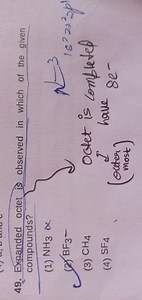 49. Expanded octet is observed in which of the given
compounds?
(1) NH3
(2) BF3
(3) CH4
(4) SF4
Octet is completed
have 8e-
(outer
most)